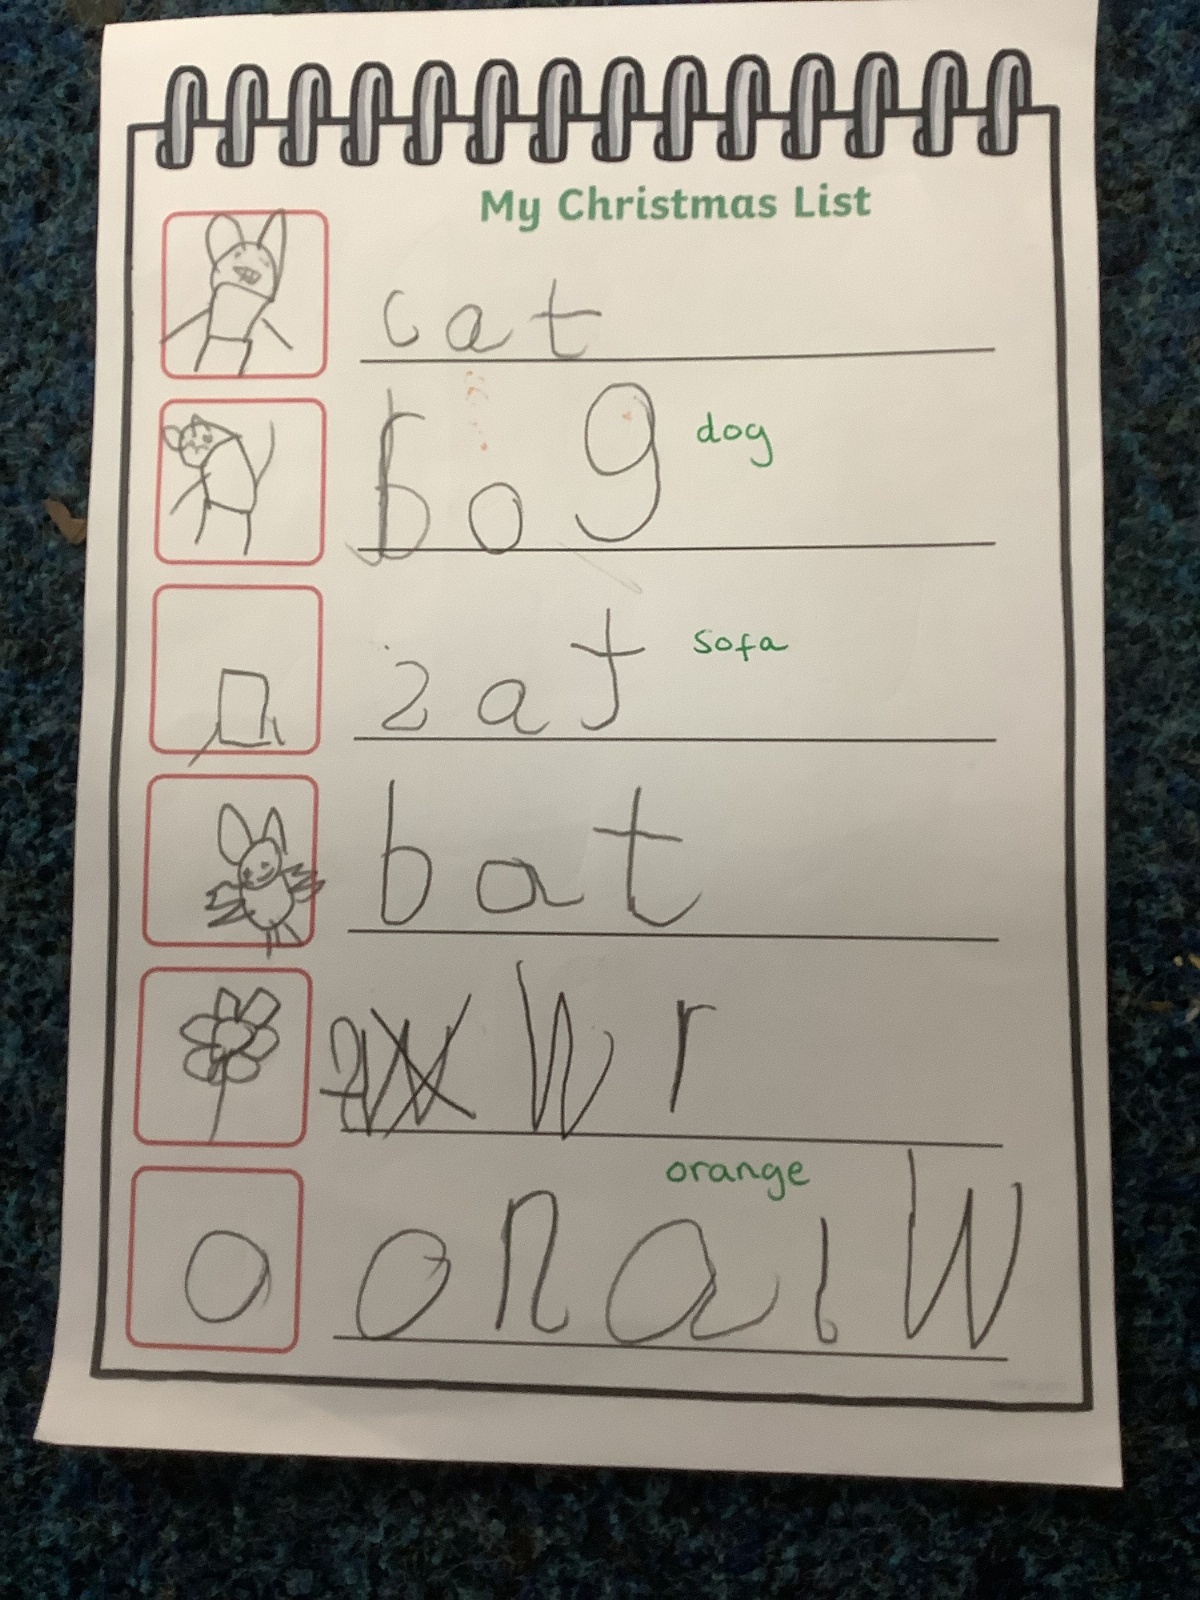 My Christmas List
cat
bog dog
zaf sofa
bat
wr
orange
onaiw